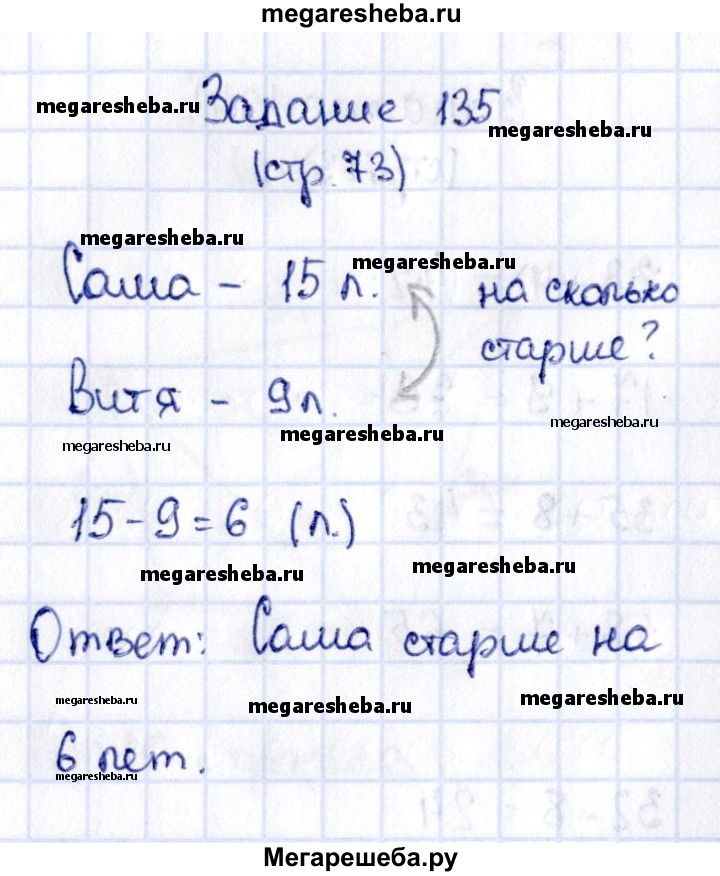 megaresheba.ru
Задание 135
megaresheba.ru
megaresheba.ru
(стр. 73)
megaresheba.ru
megaresheba.ru
Саша - 15 л. на сколько
старше?
Витя - 9 л.
megaresheba.ru
megaresheba.ru
megaresheba.ru
15-9=6 (л.)
megaresheba.ru
megaresheba.ru
Ответ: Саша старше на
megaresheba.ru
megaresheba.ru
megaresheba.ru
6 лет.
megaresheba.ru
Мегарешеба.ру